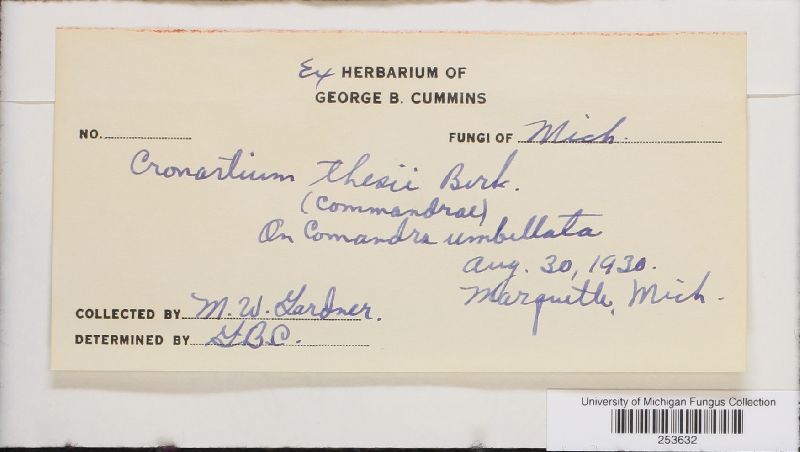 Ex HERBARIUM OF
GEORGE B. CUMMINS
NO.
FUNGI OF Mich.
Cronartium thesii Berk.
(Commandrae)
On Comandra umbellata
Aug. 30, 1930.
Marquette, Mich.
COLLECTED BY M. W. Gardner.
DETERMINED BY G.B.C.
University of Michigan Fungus Collection
253632